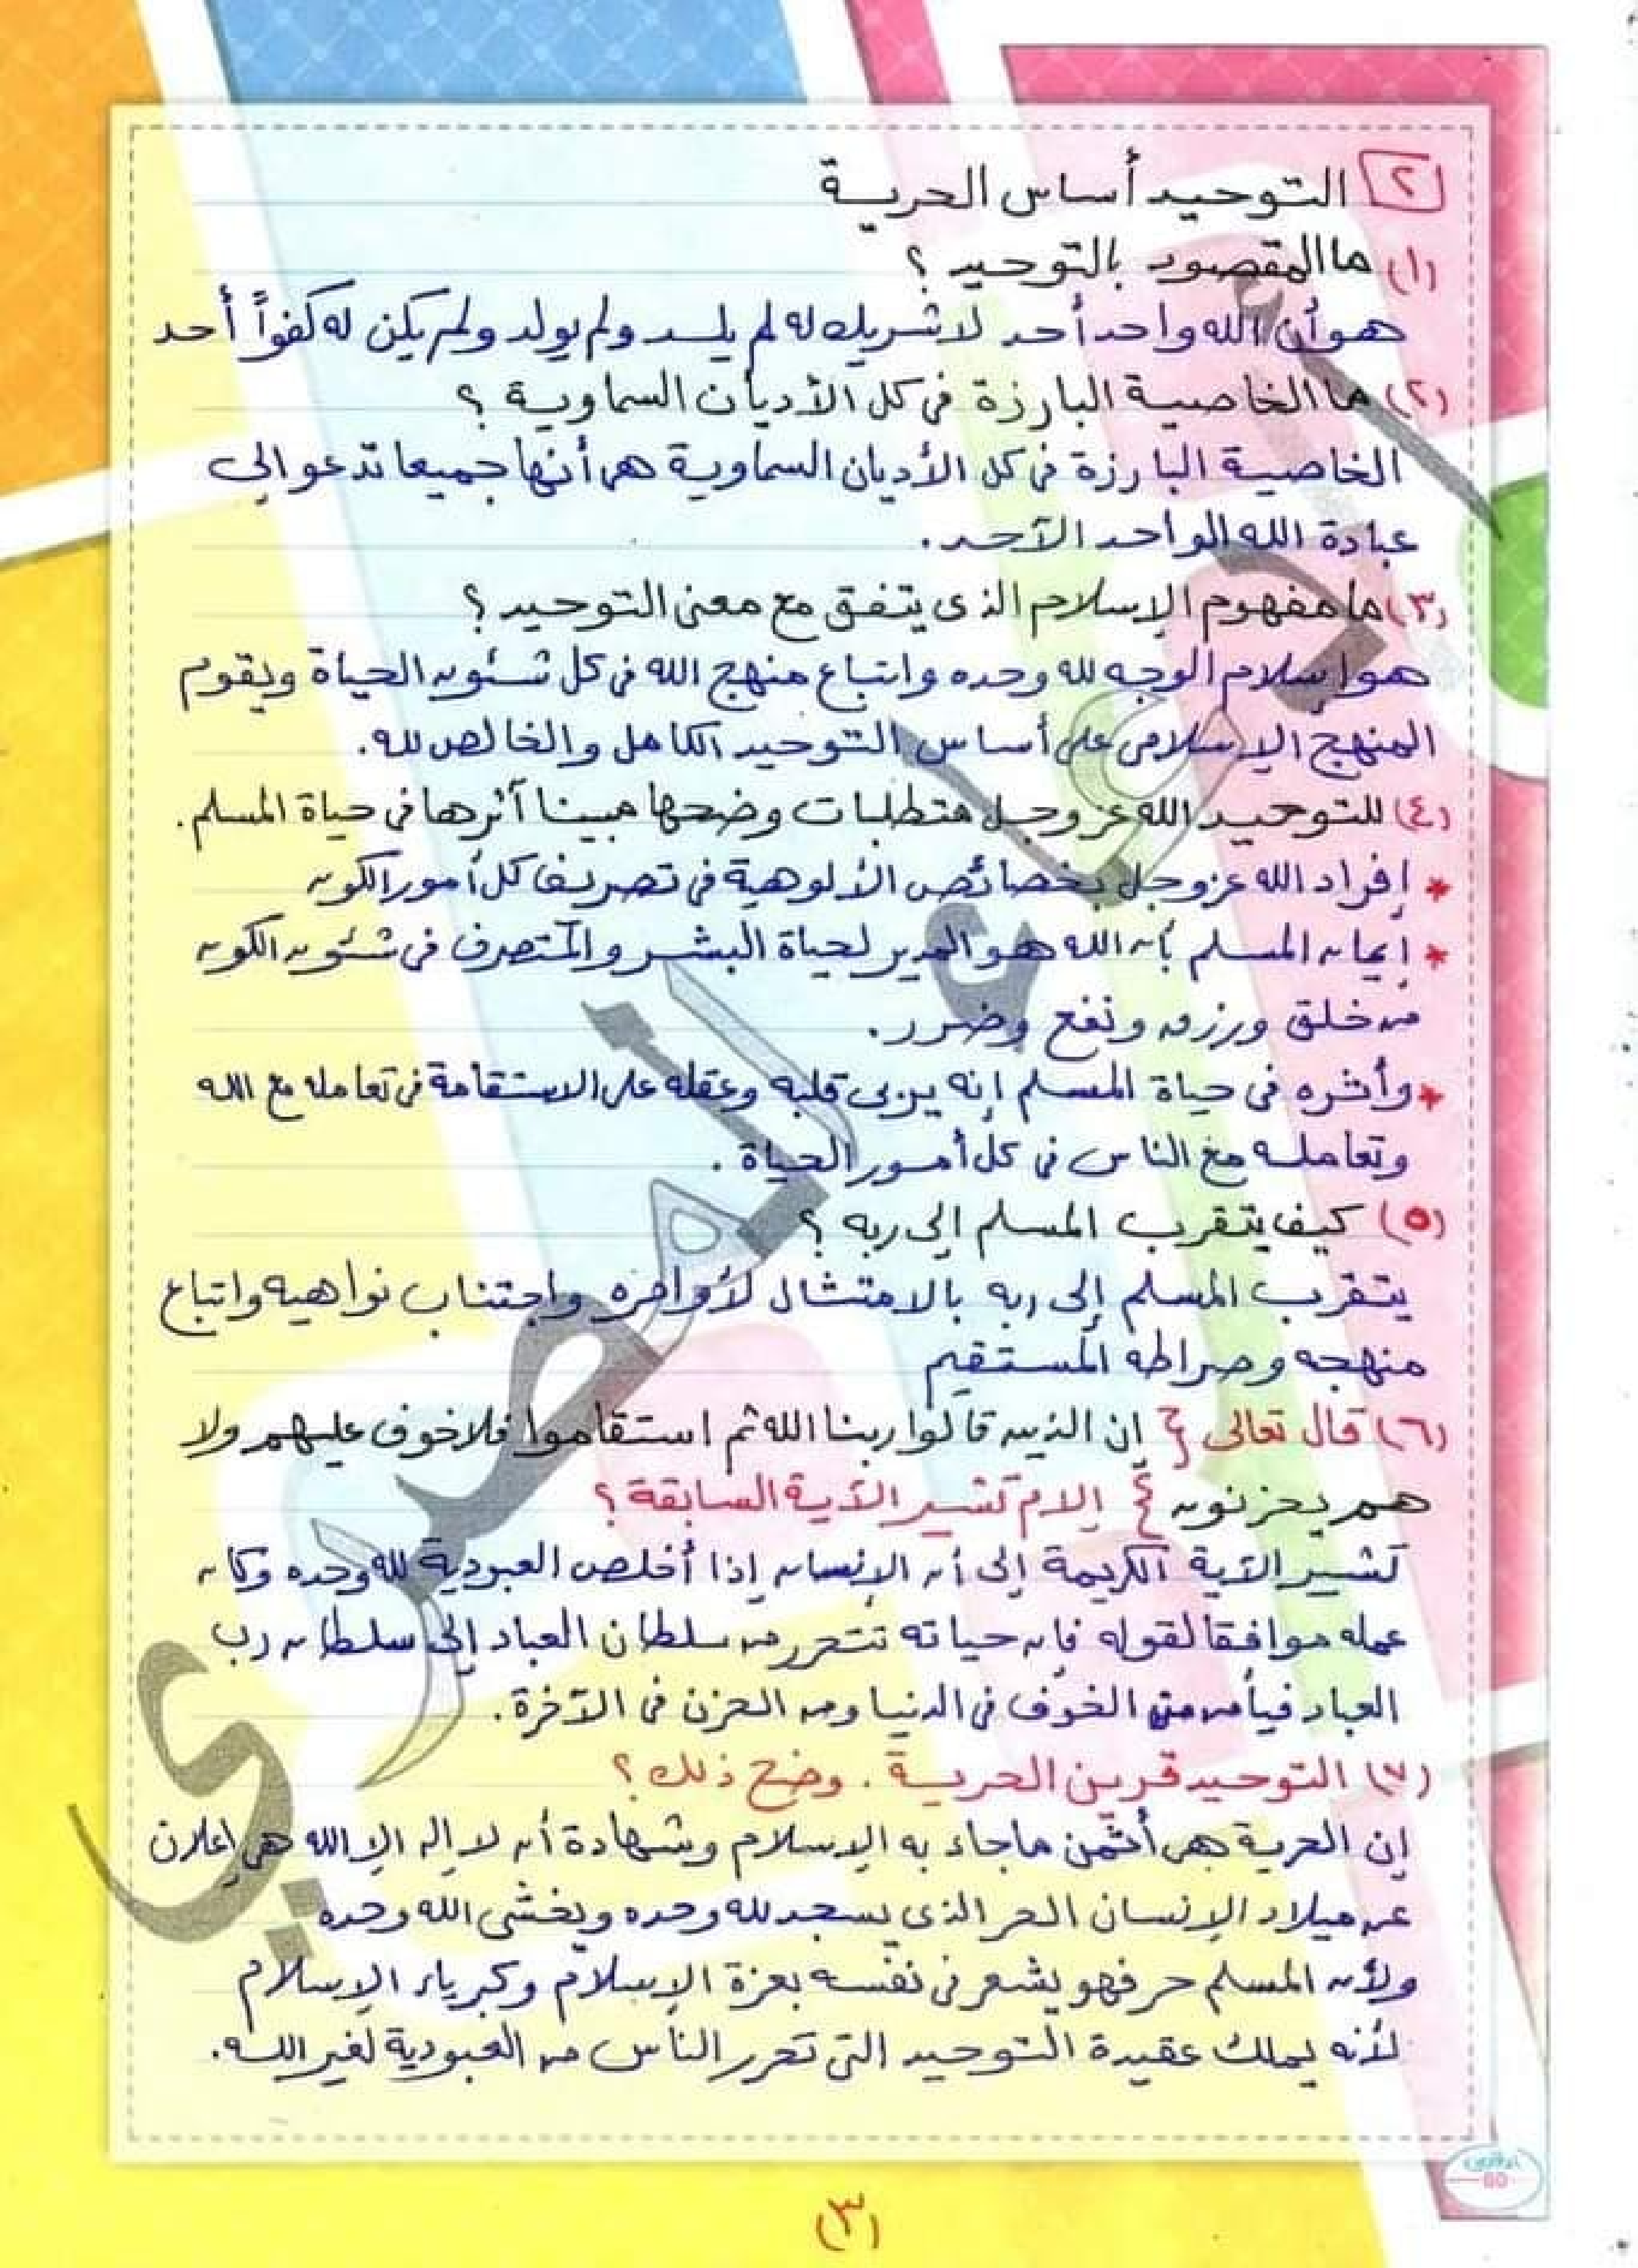 ٢ التوحيد أساس الحرية
(١) ما المقصود بالتوحيد ؟
هو أن الله واحد أحد لا شريك له لم يلد ولم يولد ولم يكن له كفواً أحد
(٢) ما الخاصية البارزة فى كل الأديان السماوية ؟
الخاصية البارزة فى كل الأديان السماوية هى أنها جميعا تدعو إلى
عبادة الله الواحد الأحد.
(٣) ما مفهوم الإسلام الذى يتفق مع معنى التوحيد ؟
هو إسلام الوجه لله وحده واتباع منهج الله فى كل شئون الحياة ويقوم
المنهج الإسلامى على أساس التوحيد الكامل والخالص لله.
(٤) للتوحيد الله عز وجل متطلبات وضحها مبينا أثرها فى حياة المسلم.
* إفراد الله عز وجل بخصائص الألوهية فى تصريف كل أمور الكون
* إيمان المسلم بأن الله هو المدبر لحياة البشر والمتصرف فى شئون الكون
من خلق ورزق ونفع وضرر.
* وأثره فى حياة المسلم إنه يربى قلبه وعقله على الاستقامة فى تعامله مع الله
وتعامله مع الناس فى كل أمور الحياة.
(٥) كيف يتقرب المسلم إلى ربه ؟
يتقرب المسلم إلى ربه بالامتثال لأوامره واجتناب نواهيه واتباع
منهجه وصراطه المستقيم
(٦) قال تعالى { إن الذين قالوا ربنا الله ثم استقاموا فلا خوف عليهم ولا
هم يحزنون } إلام تشير الآية السابقة ؟
تشير الآية الكريمة إلى أن الإنسان إذا أخلص العبودية لله وحده وكان
عمله موافقا لقوله فإن حياته تتحرر من سلطان العباد إلى سلطان رب
العباد فيأمن من الخوف فى الدنيا ومن الحزن فى الآخرة.
(٧) التوحيد قرين الحرية . وضح ذلك ؟
إن الحرية هى أثمن ما جاء به الإسلام وشهادة أن لا إله إلا الله هى إعلان
عن ميلاد الإنسان الحر الذى يسجد لله وحده ويخشى الله وحده
ولأن المسلم حر فهو يشعر فى نفسه بعزة الإسلام وكبرياء الإسلام
لأنه يملك عقيدة التوحيد التى تحرر الناس من العبودية لغير الله.
60
(٣)